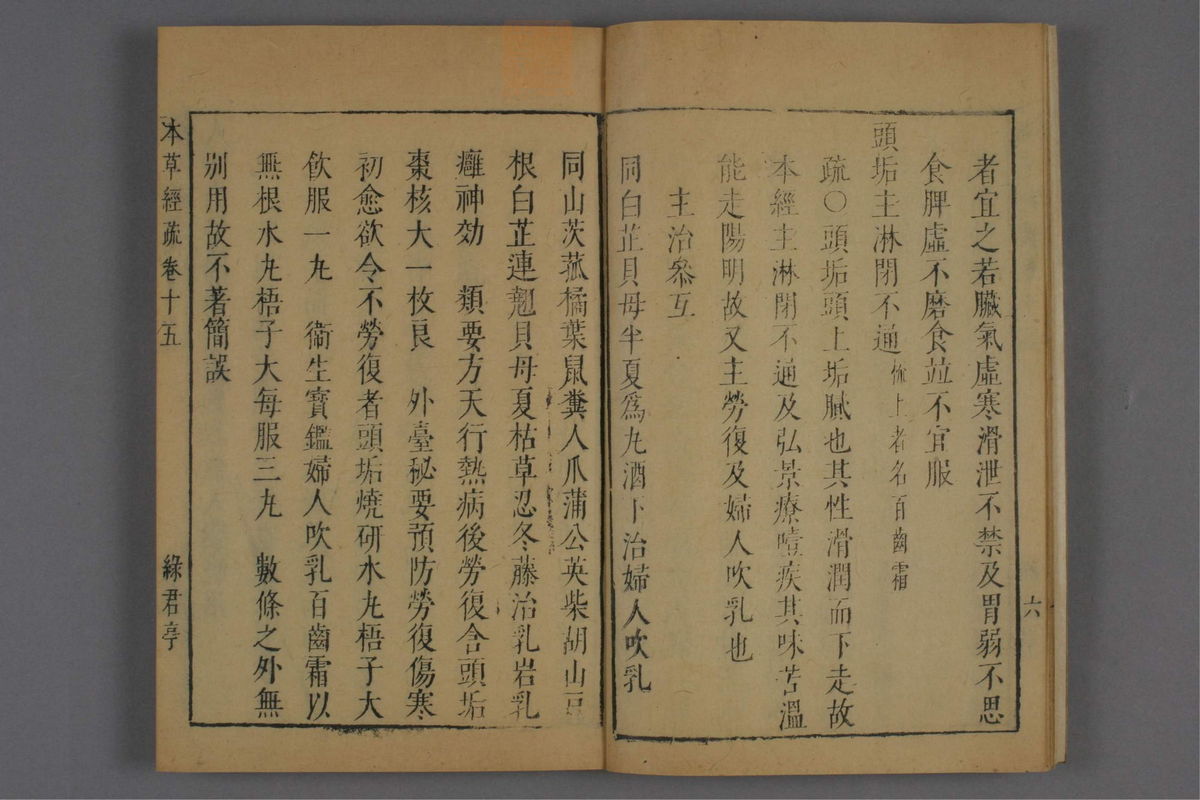 者宜之若臟氣虛寒滑泄不禁及胃弱不思
食脾虛不磨食並不宜服
頭垢主淋閉不通梳上者名百齒霜
疏○頭垢頭上垢膩也其性滑潤而下走故
本經主淋閉不通及弘景療噎疾其味苦溫
能走陽明故又主勞復及婦人吹乳也
主治叅互
同白芷貝母半夏爲丸酒下治婦人吹乳
六
同山茨菰橘葉鼠糞人爪蒲公英柴胡山豆
根白芷連翹貝母夏枯草忍冬藤治乳岩乳
癰神効　類要方天行熱病後勞復含頭垢
棗核大一枚良　外臺秘要預防勞復傷寒
初愈欲令不勞復者頭垢燒研水丸梧子大
飮服一丸　衞生寳鑑婦人吹乳百齒霜以
無根水丸梧子大每服三丸　數條之外無
別用故不著簡誤
本草經疏卷十五　綠君亭